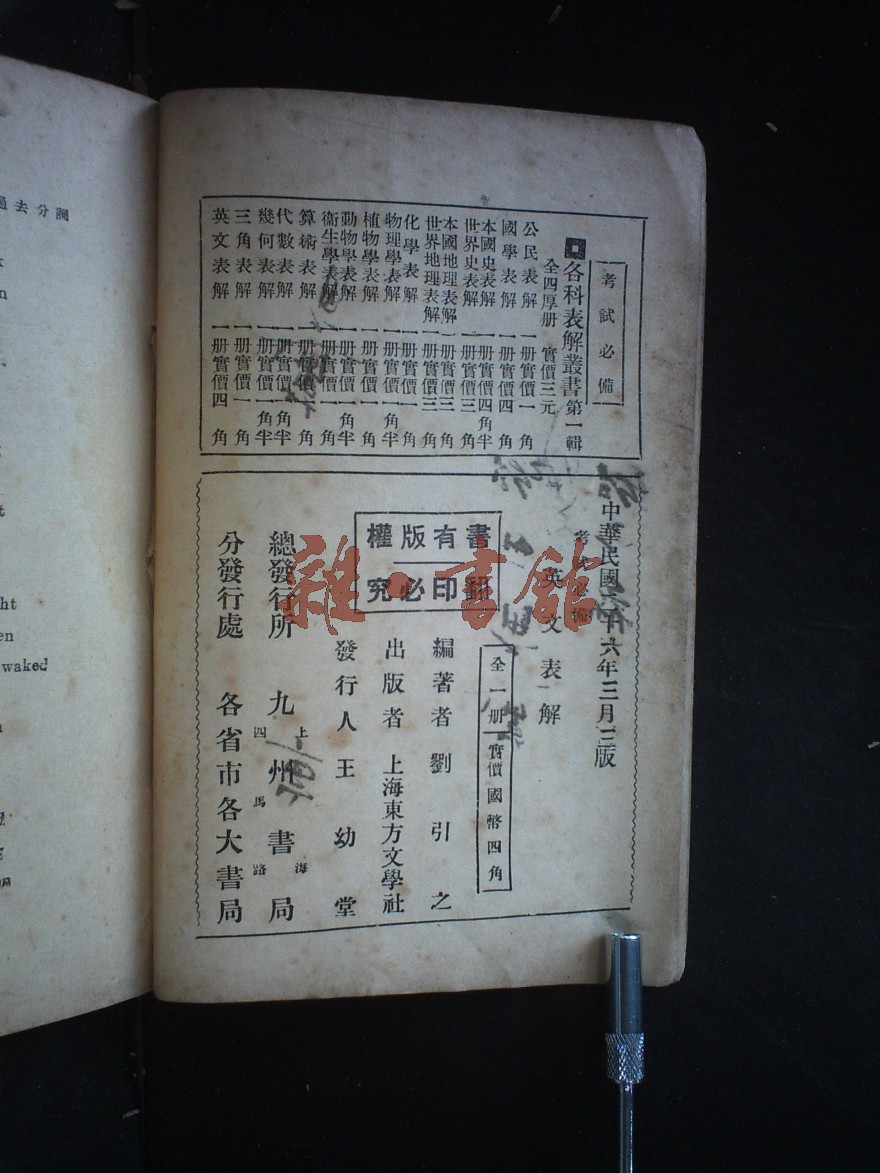 考試必備
各科表解叢書第一輯
全四厚册 實價三元
公民表解 一册實價一角
國學表解 一册實價四角
本國史表解 一册實價四角半
世界史表解 一册實價三角
本國地理表解 一册實價三角
世界地理表解 一册實價三角
化學表解 一册實價一角
物理學表解 一册實價一角半
植物學表解 一册實價一角
動物學表解 一册實價一角半
衞生學表解 一册實價一角
算術表解 一册實價一角
代數表解 一册實價一角半
幾何表解 一册實價一角半
三角表解 一册實價一角
英文表解 一册實價四角
中華民國六年三月三版
考試必備
英文表解
全一册 實價國幣四角
書有版權
翻印必究
編著者 劉引之
出版者 上海東方文學社
發行人 王幼堂
總發行所 九州書局
上海
四馬路
分發行處 各省市各大書局
雜·書館
過去分詞
waked